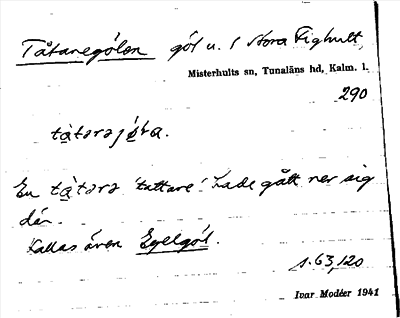 Tåtaregölen göl u. S Stora Fighult,
Misterhults sn, Tunaläns hd, Kalm. l.
290
tàtərəjö́la.
En tàtərə 'tattare' hade gått ner sig
där.
Kallas även Egelgöl.
s. 63, 120
Ivar Modéer 1941